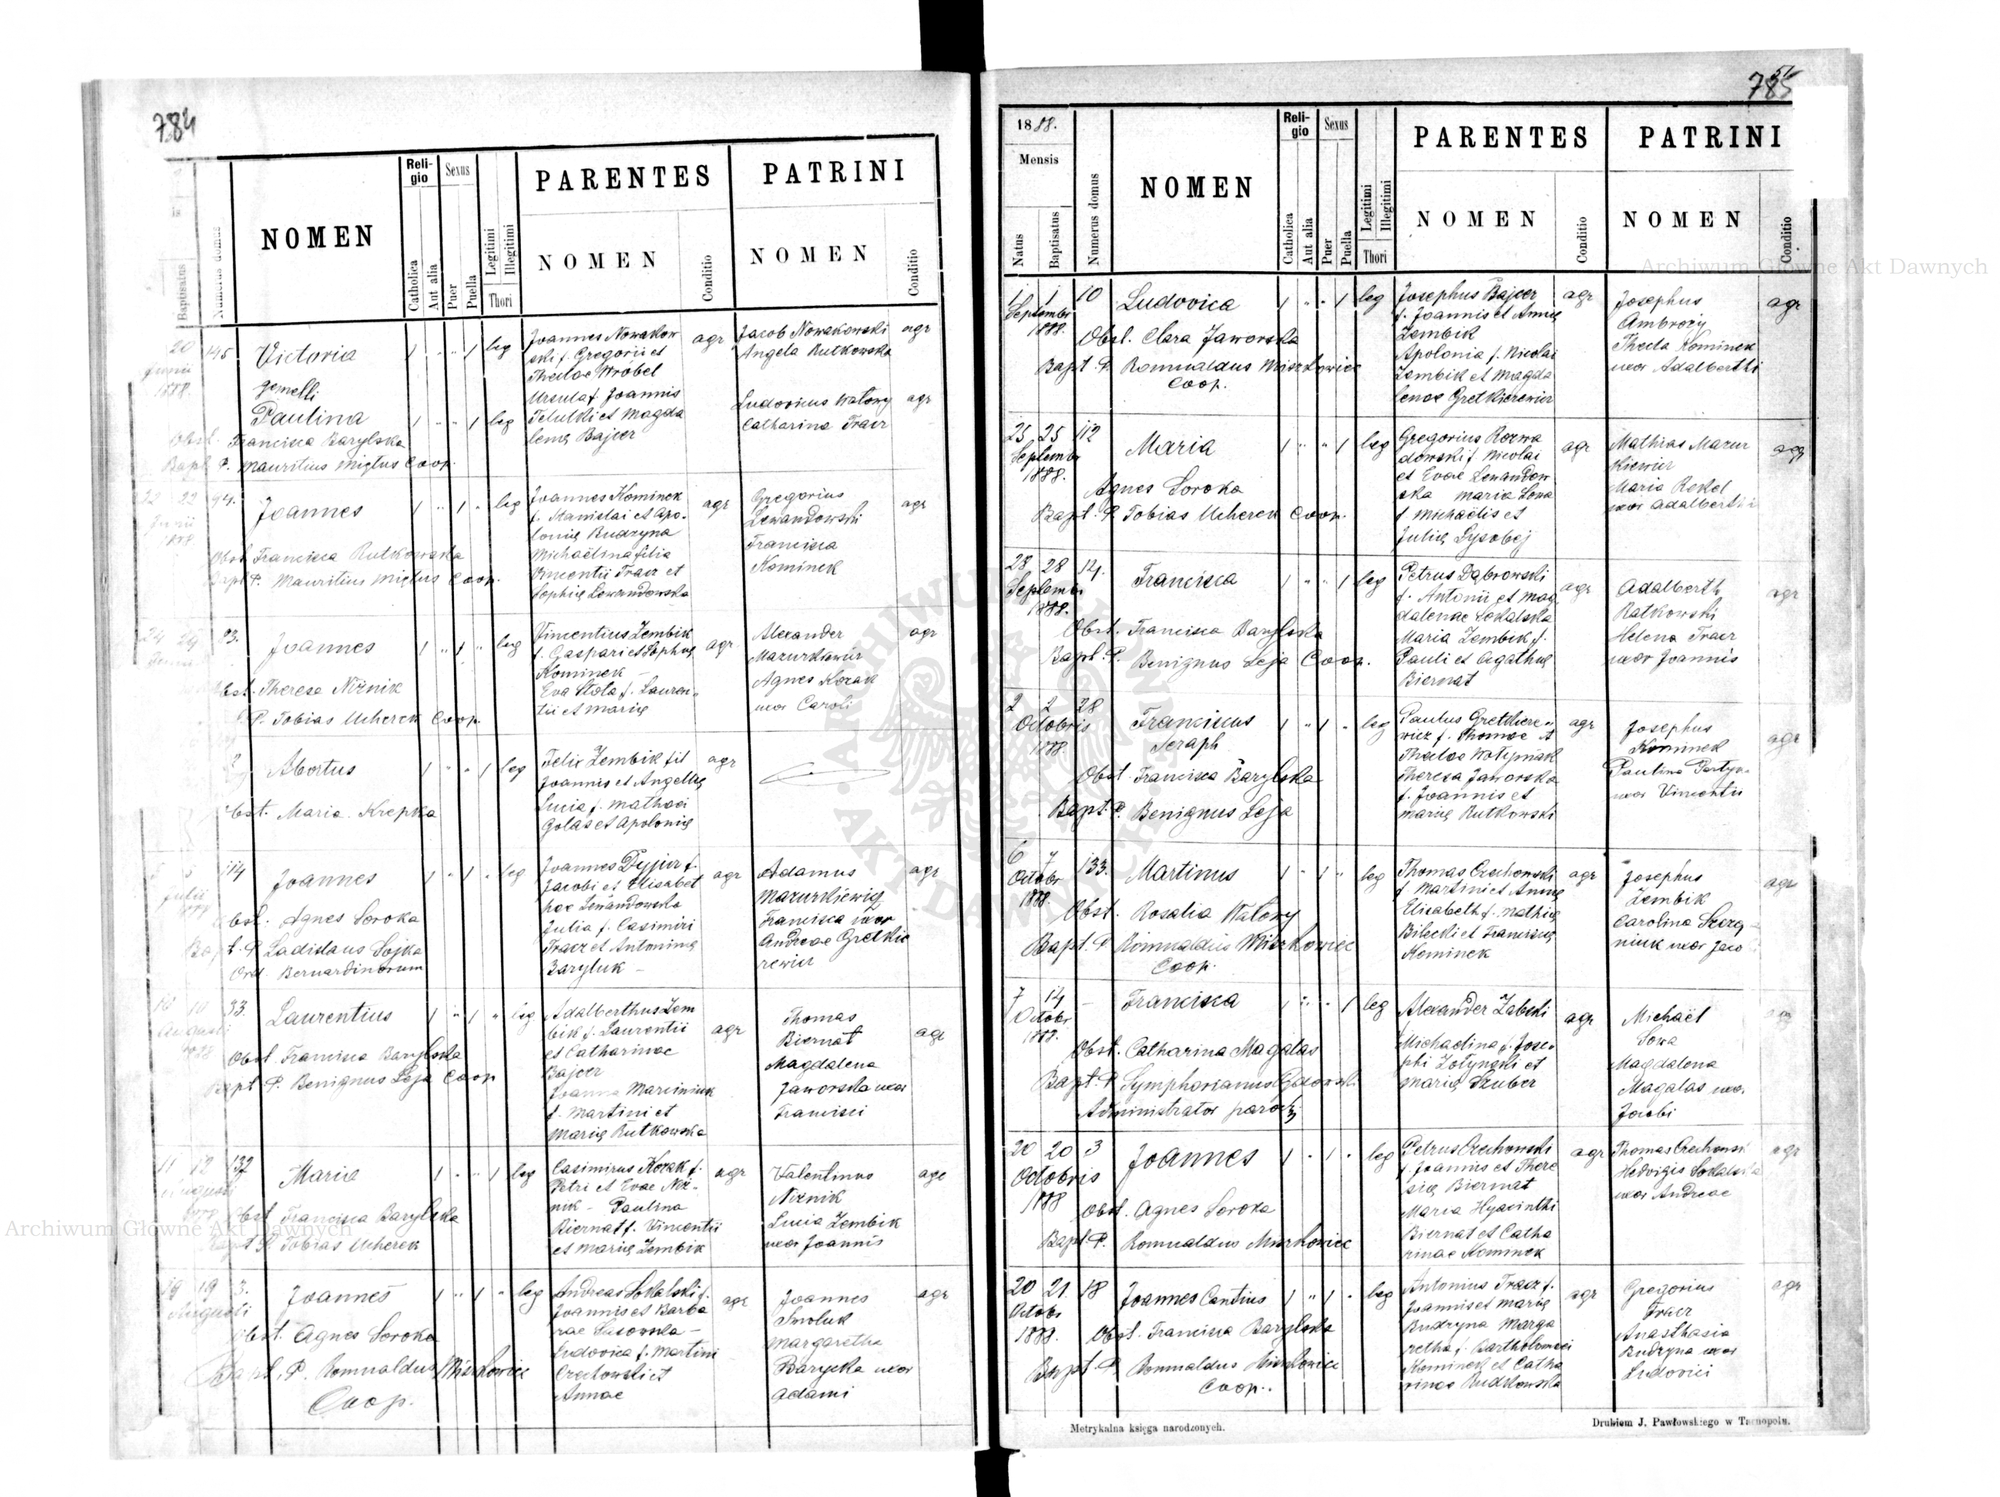 784
NOMEN
Religio
Sexus
PARENTES
PATRINI
NOMEN
NOMEN
Baptisatus
Numerus domus
Catholica
Aut alia
Puer
Puella
Legitimi
Illegitimi
Thori
Conditio
Conditio
20
Junii
1888.
145
Victoria
gemelli
Paulina
leg
leg
Obst. Francisca Barylska
Bapt P. Mauritius Miętus Coop.
Joannes Nowakow
ski f. Gregorii et
Theclae Wrobel
Ursula f. Joannis
et Magda
lenę Bajcer
agr
Jacob Nowakowski
Angela Rutkowska
Ludovicus Watory
Catharina Tracz
agr
agr
22 22
Junii
1888
94.
Joannes
leg
Obst Francisca Rutkowska
Bapt P. Mauritius Miętus Coop.
Joannes Kominek
f. Stanislai et Apo-
lonię Budzyna
Michaëlina filia
Vincentii Tracz et
Sophię Lewandowska
agr
Gregorius
Lewandowski
Francisca
Kominek
agr
24 24
Junii
93.
Joannes
leg
Obst. Theresa Niżnik
P. Tobias Ucherek Coop.
Vincentius Zembik
f. Gaspari et Sophię
Kominek
Eva Stola f. Lauren-
tii et Marię
agr
Alexander
Mazurkiewicz
Agnes Kozak
uxor Caroli
agr
Abortus
leg
Obst. Maria Krepka
Felix Zembik fil
Joannis et Angellę
Lucia f. Mathaei
Golas et Apolonię
agr
5 5
Julii
114
Joannes
leg
Obst. Agnes Soroka
Bapt. P. Ladislaus Sojka
Ord. Bernardinorum
Joannes f.
Jacobi et Elisabet
hae Lewandowska
Julia f. Casimiri
Tracz et Antoninę
Baryluk
agr
Adamus
Mazurkiewicz
Francisca uxor
Andreae Gretkie
rewicz
agr
10 10
Augusti
1888
33.
Laurentius
leg
Obst Francisca Barylska
Bapt P. Benignus Leja Coop
Adalberthus Zem
bik f. Laurentii
et Catharinae
Bajcer
Joanna Marciniuk
f. Martini et
Marię Rutkowska
agr
Thomas
Biernat
Magdalena
Jaworska uxor
Francisci
agr
11 12
Augusti
132
Maria
leg
Obst Francisca Barylska
Bapt P. Tobias Ucherek
Casimirus Kozak f.
Petri et Evae Niż-
nik - Paulina
Biernat f. Vincentii
et Marię Zembik
agr
Valentinus
Niżnik
Lucia Zembik
uxor Joannis
agr
19 19
Augusti
3.
Joannes
leg
Obst. Agnes Soroka
Bapt. P. Romualdus Miszkowicz
Coop.
Andreas Sokalski f.
Joannis et Barba
rae
Ludovica f. Martini
Orzchowski et
Annae
agr
Joannes
Smoluk
Margaretha
Barycka uxor
Adami
agr
785
1888.
Mensis
Natus
Baptisatus
Numerus domus
NOMEN
Religio
Sexus
Catholica
Aut alia
Puer
Puella
Legitimi
Illegitimi
Thori
PARENTES
PATRINI
NOMEN
NOMEN
Conditio
Conditio
1 1
September
1888.
10
Ludovica
leg
Obst. Clara Jaworska
Bapt. P. Romualdus Miszkowicz
Coop.
Josephus Bajcer
f. Joannis et Annę
Zembik
Apolonia f. Nicolai
Zembik et Magda
lenae Gretkierewicz
agr
Josephus
Ambroży
Thecla Kominek
uxor Adalberthi
agr
25 25
Septembr
1888.
112
Maria
leg
Agnes Soroka
Bapt. P. Tobias Ucherek Coop.
Gregorius Rozwa
dowski f. Nicolai
et Evae Lewandow
ska Maria Sowa
f Michaëlis et
Julię Lysobej
agr
Mathias Mazur
kiewicz
Maria Rekel
uxor Adalberthi
agr
28 28
Septembr
1888.
14.
Francisca
leg
Obst. Francisca Barylska
Bapt. P. Benignus Leja Coop.
Petrus Dąbrowski
f. Antonii et Mag
dalenae Sokalska
Maria Zembik f.
Pauli et Agathę
Biernat
agr
Adalberth
Ratkowski
Helena Tracz
uxor Joannis
agr
2 2
Octobris
1888.
28
Franciscus
Seraph
leg
Obst. Francisca Barylska
Bapt. P. Benignus Leja
Paulus Gretkiere-
wicz f. Thomae et
Theclae Wołyniak
Theresa Jaworska
f. Joannis et
Marię Rutkowski
agr
Josephus
Kominek
Paulina
uxor Vincentii
agr
6 7
Octobr
1888.
133.
Martinus
leg
Obst. Rosalia Watory
Bapt. P Romualdus Miszkowicz
Coop.
Thomas Orzchowski
f Martini et Annę
Elisabeth f. Mathię
Bilecki et Franciscę
Kominek
agr
Josephus
Zembik
Carolina
uxor Jaco
agr
7 14
Octobr
1888.
-
Francisca
leg
Obst. Catharina Magalas
Bapt. P Symphorianus
Administrator paroch
Alexander Zabski
Michaelina f. Jose-
phi Zołynski et
Marię Szuber
agr
Michaël
Sowa
Magdalena
Magalas uxor
Jacobi
agr
20 20
Octobris
1888
3
Joannes
leg
Obst. Agnes Soroka
Bapt. P. Romualdus Miszkowicz
Petrus Orzchowski
f. Joannis et There
się Biernat
Maria Hyacinthi
Biernat et Catha
rinae Kominek
agr
Thomas Orzchowski
Hedvigis Sokalska
uxor Andreae
agr
20 21.
Octobr
1888.
18
Joannes Cantius
leg
Obst. Francisca Barylska
Bapt. P. Romualdus Miszkowicz
Coop.
Antonius Tracz f.
Joannis et Marię
Budzyna Marga
retha f. Bartholomaei
Kominek et Catha
rinae Rudkowska
agr
Gregorius
Tracz
Anasthasia
Budzyna uxor
Ludovici
agr
Metrykalna księga narodzonych.
Drukiem J. Pawłowskiego w Tarnopolu.
Archiwum Główne Akt Dawnych
Archiwum Główne Akt Dawnych
ARCHIWUM GŁÓWNE AKT DAWNYCH